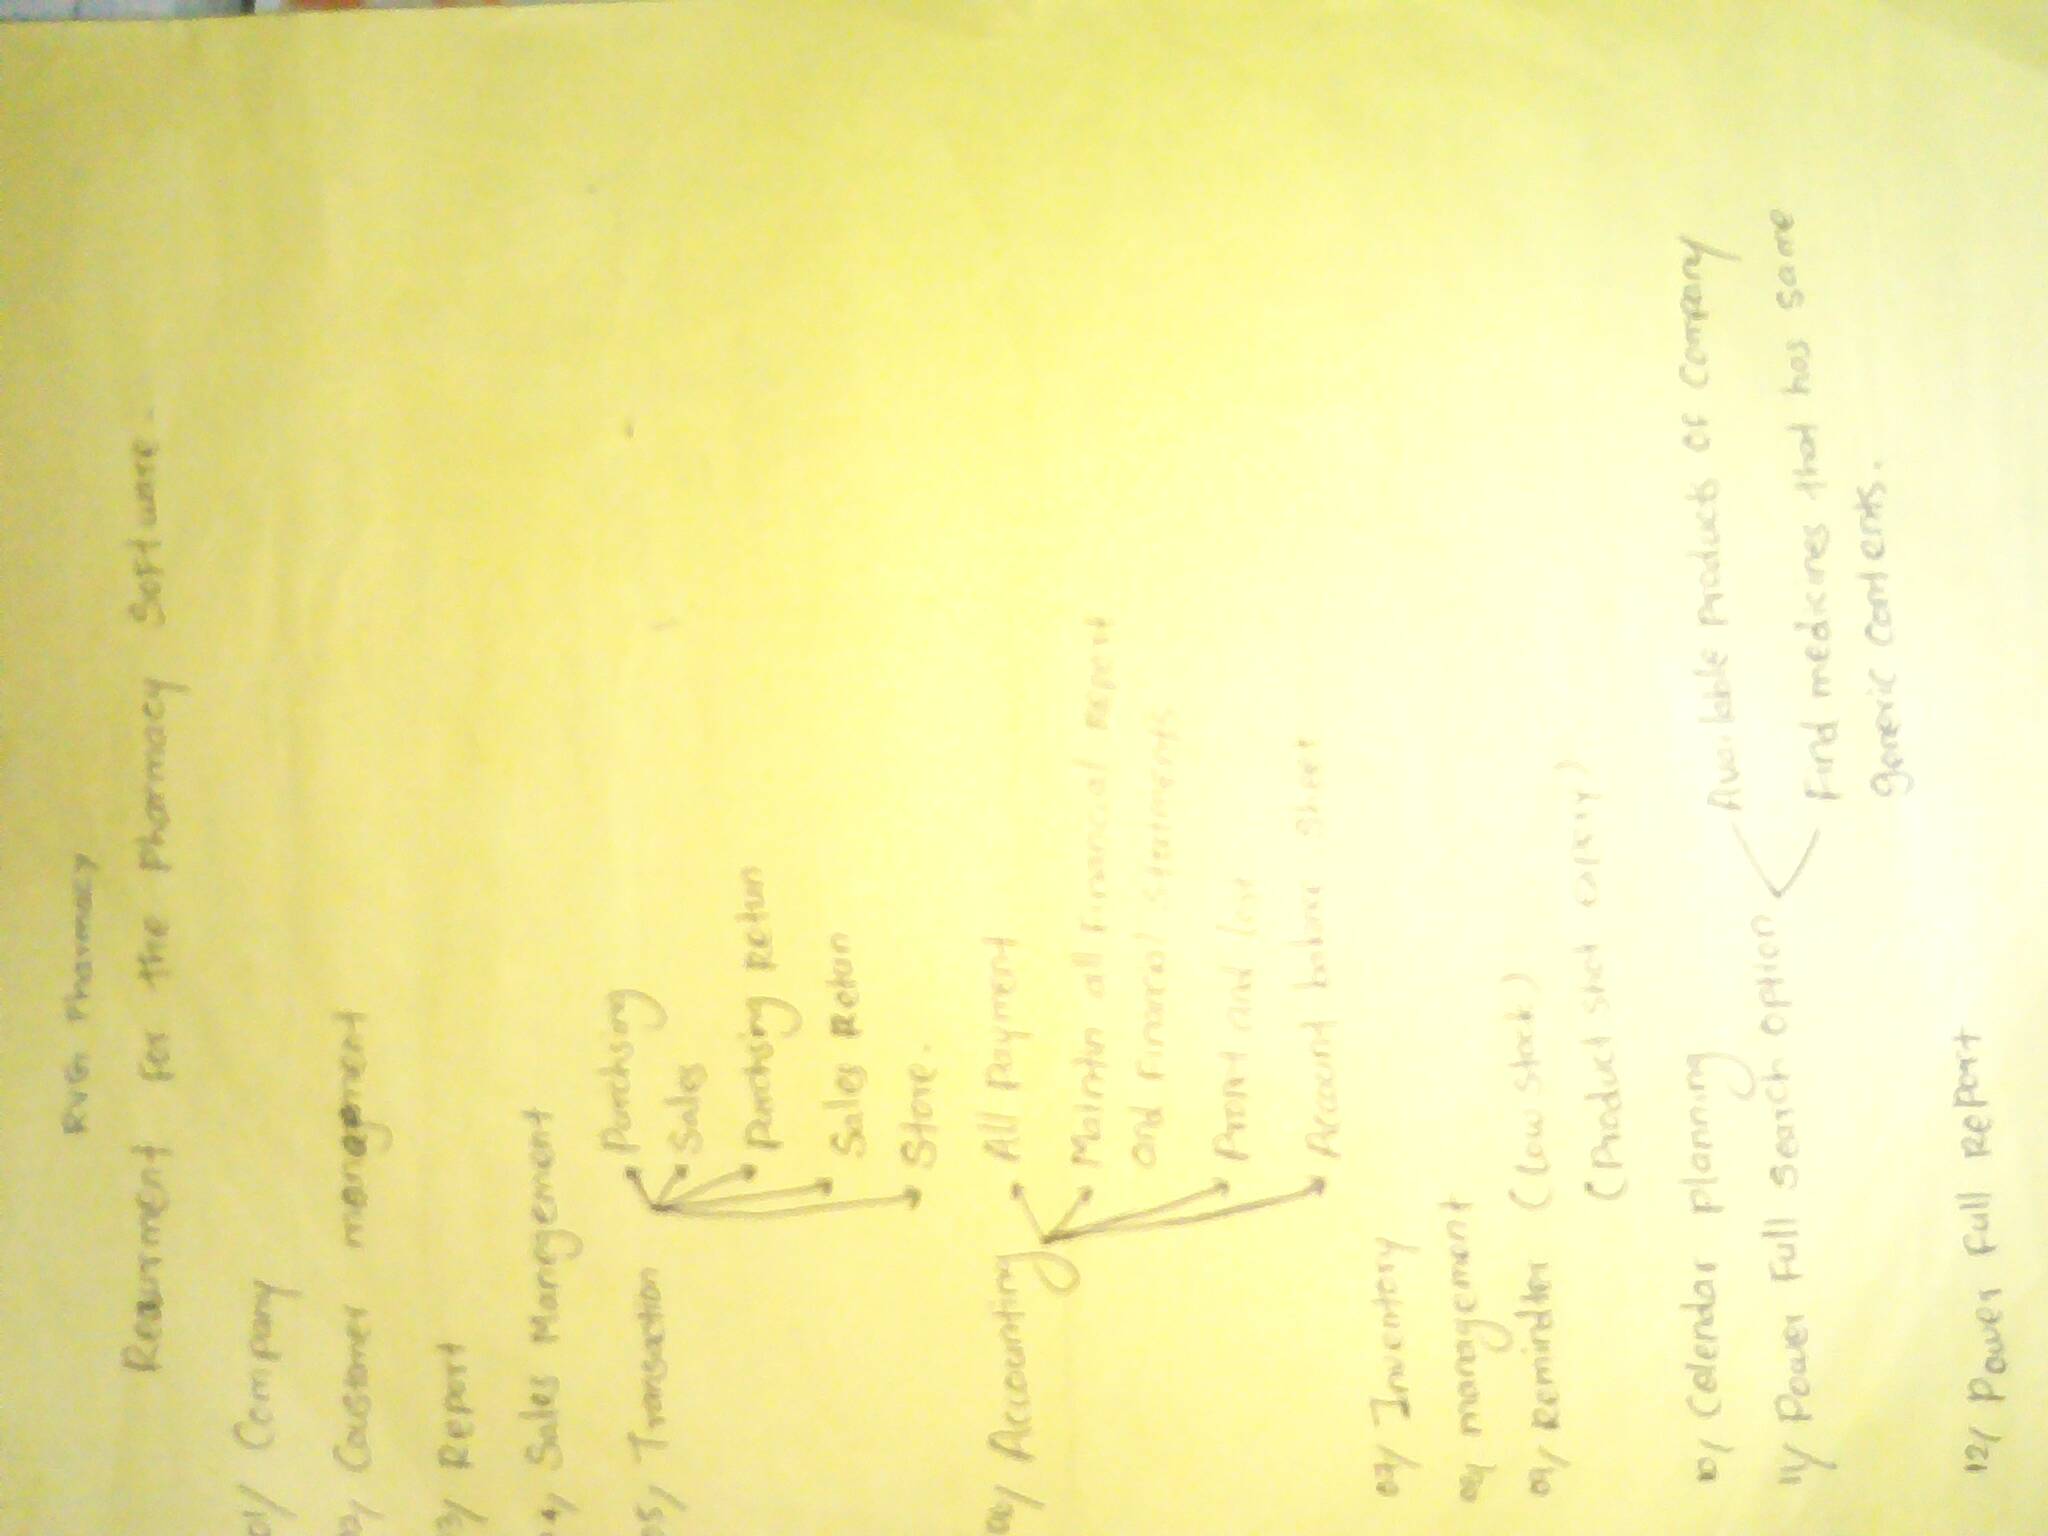 RVG Pharmacy
Reaurment for the pharmacy Software.
01/ Company
02, Coustomer management
3/ Report
4, Sales Mangement
05, Transaction
Purchsing
Sales
Purchsing Retun
Sales Retun
Store.
06/ Accounting
All Payment
Maintin all financial report
and financial
Profit and lost
Account sheet
07/ Inventory
08/ management
09/ Remindter (Low stock)
(Product shot
10/ Calendar planning
11/ Power full search option
Available products of company
Find medicines that has same
generic contents.
12/ Power full Report